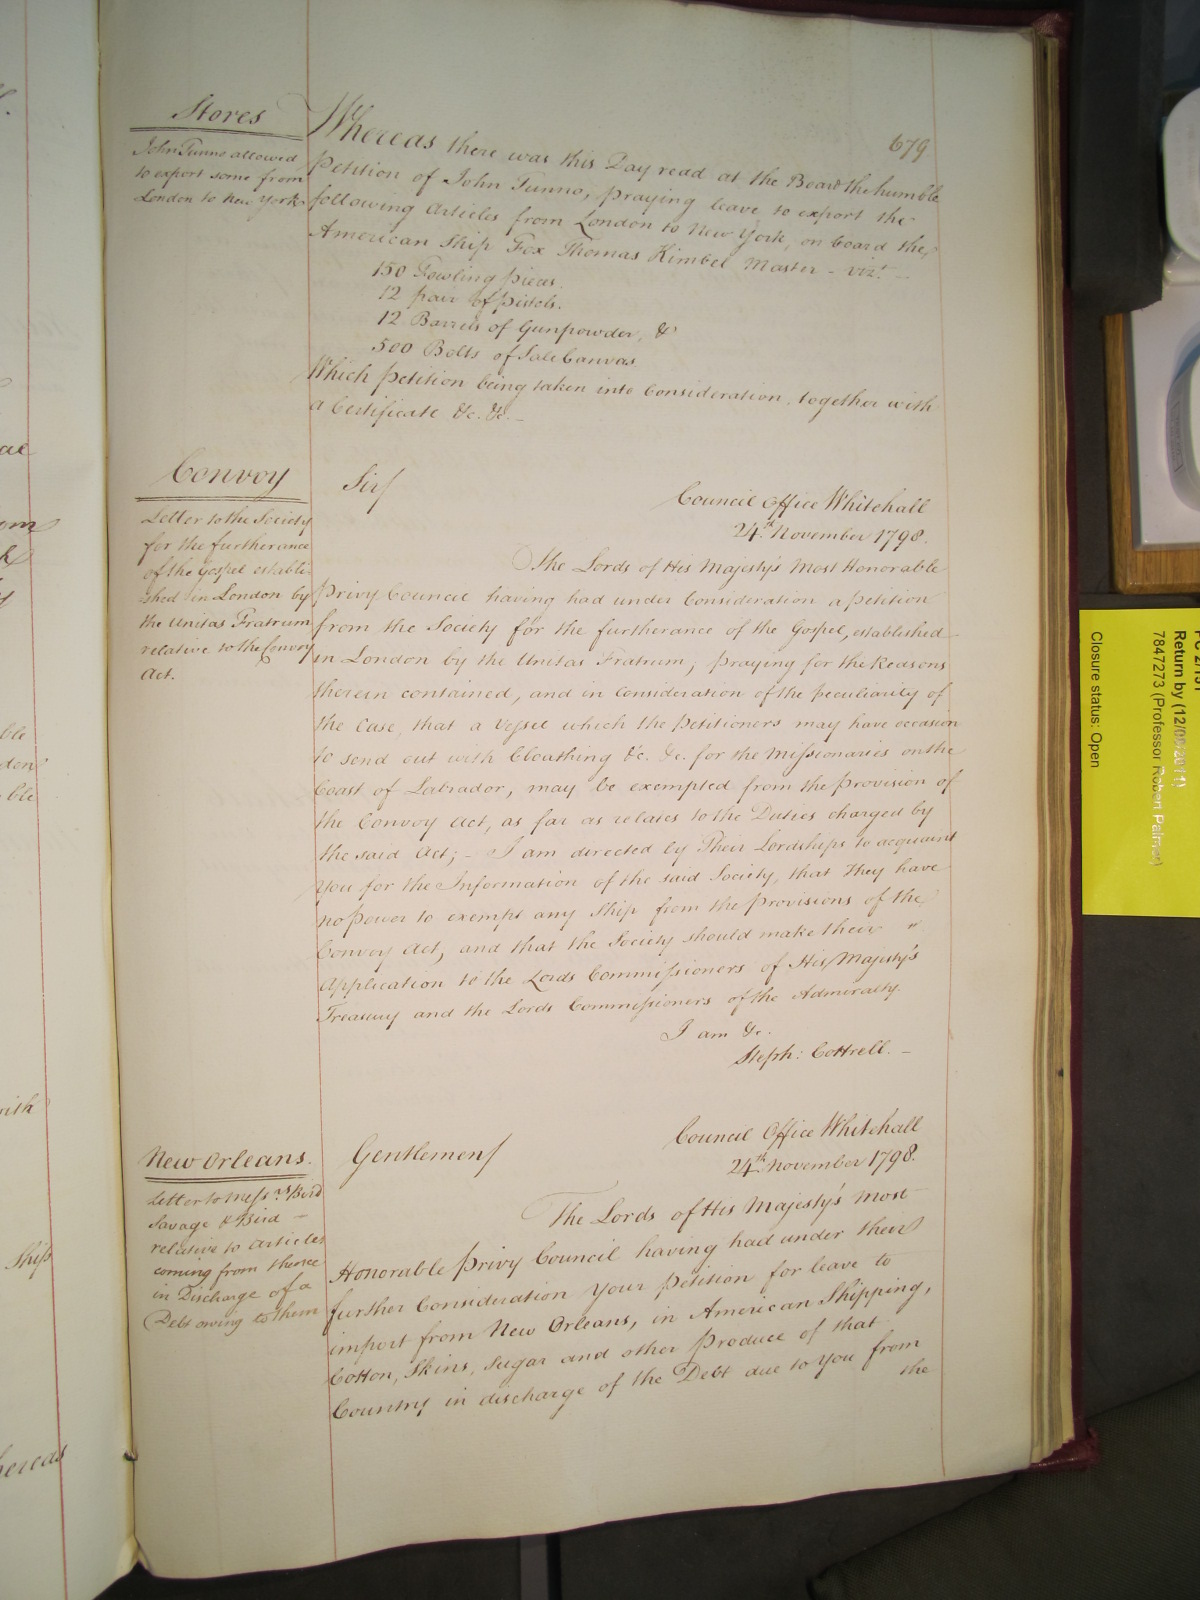 679
Stores
John Tunno allowed
to export some from
London to New York
Whereas there was this Day read at the Board the humble
Petition of John Tunno, praying leave to export the
following Articles from London to New York, on board the
American Ship Fox Thomas Kimbel Master - vizt.
150 Fowling pieces.
12 pair of pistols.
12 Barrels of Gunpowder, &
500 Bolts of Sale Canvas
Which petition being taken into Consideration, together with
a Certificate &c. &c. -
Convoy
Letter to the Society
for the furtherance
of the Gospel establi-
shed in London by
the Unitas Fratrum
relative to the Convoy
Act.
Sir/
Council Office Whitehall
24th. November 1798.
The Lords of His Majesty's Most Honorable
Privy Council having had under Consideration a petition
from the Society for the furtherance of the Gospel, established
in London by the Unitas Fratrum, praying for the Reasons
therein contained, and in Consideration of the peculiarity of
the Case, that a Vessel which the Petitioners may have occasion
to send out with Cloathing &c. &c. for the Missionaries on the
Coast of Labrador, may be exempted from the provision of
the Convoy Act, as far as relates to the Duties charged by
the said Act; - I am directed by Their Lordships to acquaint
You for the Information of the said Society, that They have
no power to exempt any Ship from the provisions of the
Convoy Act, and that the Society should make their "
Application to the Lords Commissioners of His Majesty's
Treasury and the Lords Commissioners of the Admiralty.
I am &c.
Steph: Cottrell. -
New Orleans.
Letter to Messrs Bird
Savage & Bird -
relative to Articles
coming from thence
in Discharge of a
Debt owing to them
Gentlemen/
Council Office Whitehall
24th. November 1798.
The Lords of His Majesty's most
Honorable Privy Council having had under their
further Consideration Your Petition for leave to
import from New Orleans, in American Shipping,
Cotton, Skins, Sugar and other Produce of that
Country in discharge of the Debt due to You from
the
Return by (12/09/2011)
7847273 (Professor Robert Palmer)
Closure status: Open
ship
hereas